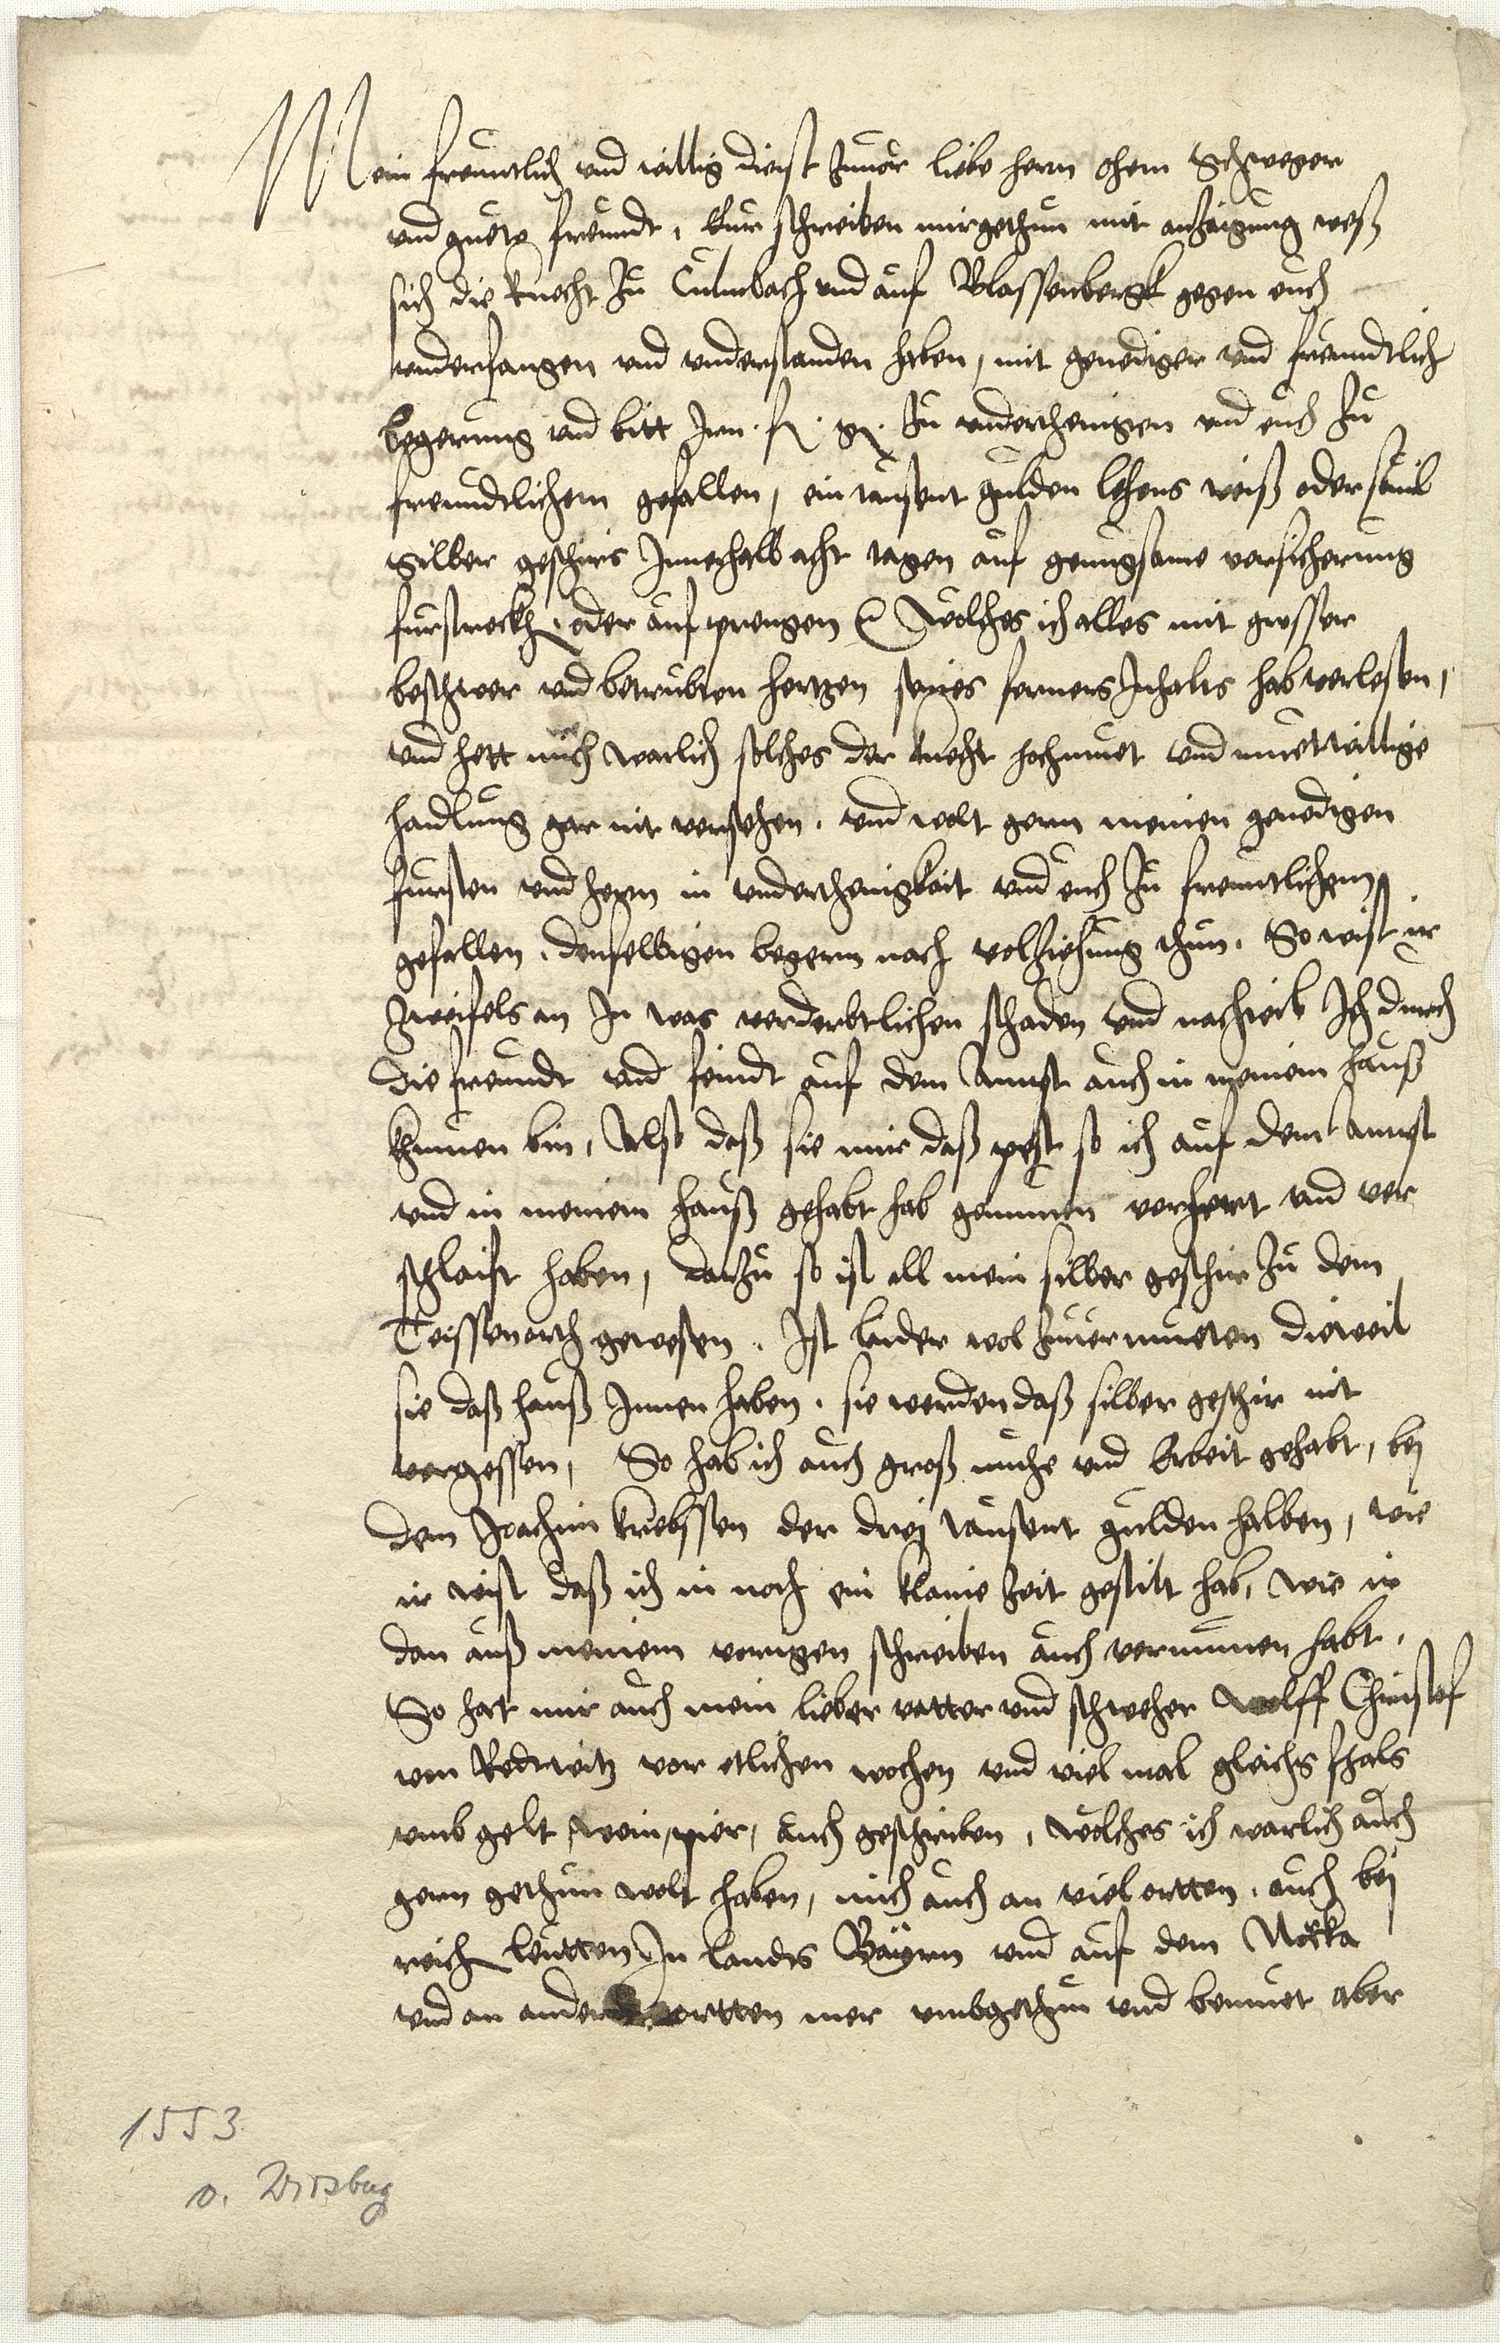 Mein freuntlich und willig dienst zuuor liebe herrn ohem Schweger
und guete freundt, Eur schreiben mir gethun mit anzaigung weß
sich die knecht zu Culmbach und auf Blassenbergk gegen euch
underfangen und understanden haben, mit genediger und freundtlich
begerung und bitt Iren. f. g. zu underthenigen und euch zu
freundtlichem gefallen, ein tausent gulden lehens weiß oder souil
Silber geschirs Innerhalb acht tagen auf genugsame versicherung
furstreckh. oder aufprengen Wölches ich alles mit grosser
beschwer und betrubten hertzen seines ferners Inhalts hab verlesen,
und hett mich warlich solches der knecht hochmuet und muetwillige
handlung gar nit versehen. und wolt gern meinen genedigen
fursten und hern in underthenigkeit und euch zu freuntlichem
gefallen. denselbigen begern nach volziehung thun. So wist ir
zweifels an In was verderbtlichen schaden und nachteil Ich durch
die freundt und feindt auf dem Ampt auch in meinem hauß
khumen bin, Also daß sie mir daß pest so ich auf dem Ampt
und in meinem hauß gehabt hab genumen verhert und ver
schlaift haben, darzu so ist all mein silber geschir zu dem
Teissenorth gewesen. Ist laider wol zuuermueten dieweil
sie daß hauß Innen haben. sie werden daß silber geschir nit
vergessen, So hab ich auch groß muhe und Arbeit gehabt, bej
dem Joachim krebssen der drej tausent gulden halben, wie
ir wist daß ich in noch ein klaine zeit gestilt hab, wie ir
dan auß meinem vorigen schreiben auch vernumen habt.
So hat mir auch mein lieber vatter und schweher Wolff Christof
von Redwitz vor etlichen wochen und viel mal gleichs fhals
umb gelt, wein, pier, auch geschrieben, wölches ich warlich auch
gern gethun wolt haben, mich auch an viel ortten. auch bej
reich leutten In landts Bayrn und auf dem Nöcka
und an andern ortten mer umbgethun und bemuet aber
1553
v. Wirsbug